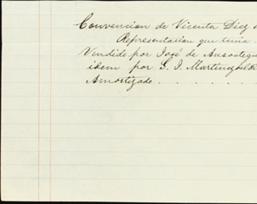 Convencion de Vicenta Diez
Representacion que tenia
Vendido por José de Ansoategui
idem por S. I. Martinez
Amortizado . . . .